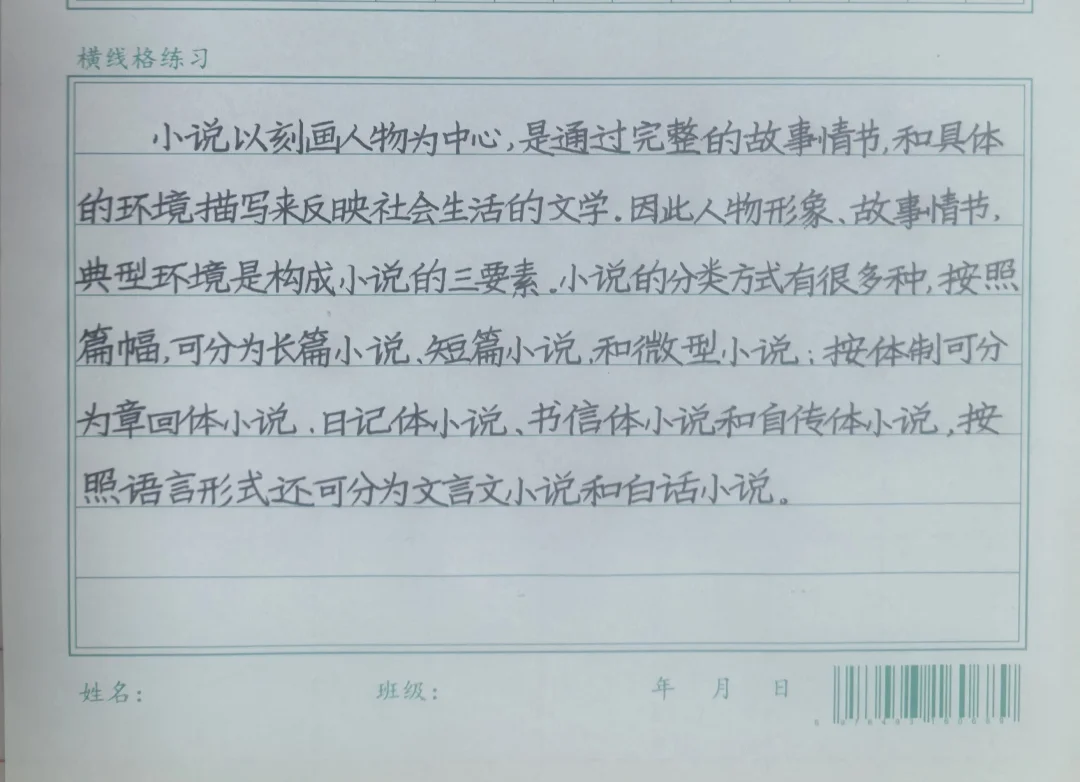 横线格练习
小说以刻画人物为中心,是通过完整的故事情节,和具体
的环境描写来反映社会生活的文学.因此人物形象、故事情节,
典型环境是构成小说的三要素.小说的分类方式有很多种,按照
篇幅,可分为长篇小说、短篇小说,和微型小说;按体制可分
为章回体小说、日记体小说、书信体小说和自传体小说,按
照语言形式还可分为文言文小说和白话小说。
姓名:
班级:
年 月 日